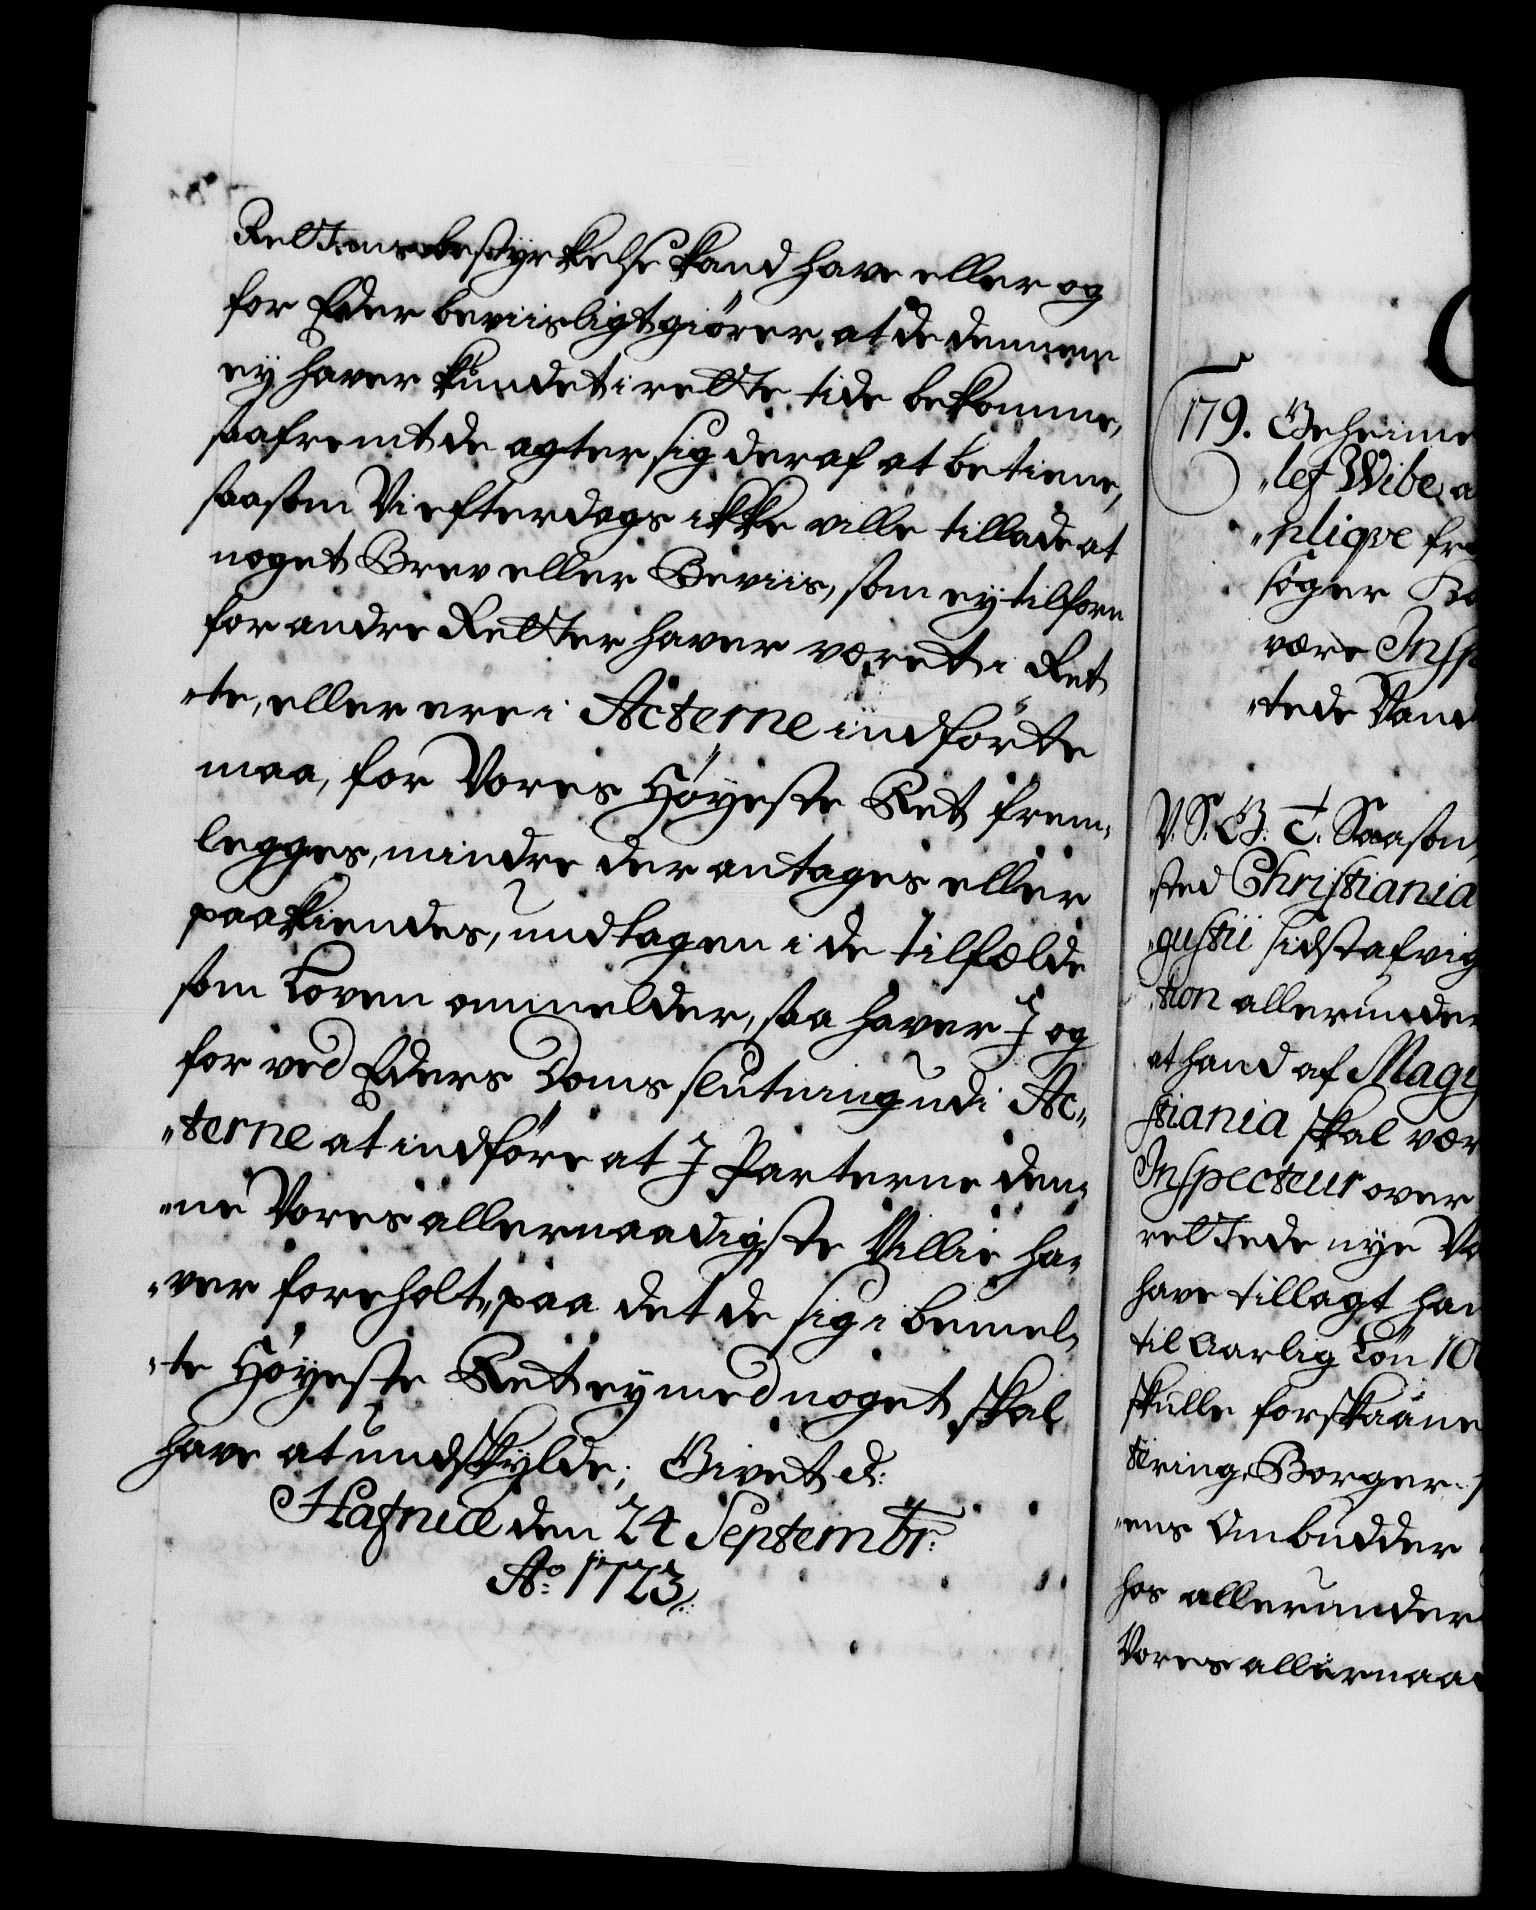 Rettens bestyrkelse kand have eller og
for Eder beviisligt giører, at de dennem
ey haver kundet i rette tide bekomme,
saafremt de agter sig deraf at betiene,
saasom Vi efterdags ikke ville tillade at
noget Brev eller Beviis, som ey tilforn
for andre Retter haver været i Ret
"te, eller ere i Acterne indførte
maa, for Vores Høyeste Ret frem„
legges, mindre der antages eller
paakiendes, undtagen i de tilfælde
som Loven ommelder, saa haver I og
for ved Eders Doms slutning udi Ac„
"terne at indføre at I Parterne den„
"ne Vores allernaadigste Villie ha„
"ver foreholt, paa det de sig i bemel„
"te Høyeste Ret ey med noget skal
have at undskylde; Givet d:
Hafniæ den 24 Septembr:
Ao: 1723.
179. Geheime
"lef Wibe, a
"pliqve fra
søger
være Insp
"tede Vand
V. S. G. T. Saasom
sted Christiania
"gustii sidst afvig
"tion allerunder
at hand af Magi
stiania skal vær
Inspecteur over
rettede nye Va
have tillagt ham
til Aarlig Løn 10
skulle forskaane
tering, Borger
"ens Ombudder
hos allerunder
Vores allernaad